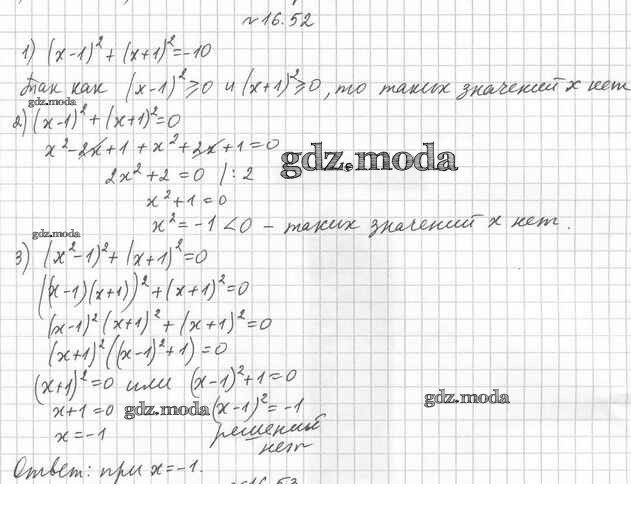 №16.52
1) (x-1)² + (x+1)² = -10
Так как (x-1)² ≥ 0 и (x+1)² ≥ 0, то таких значений x нет
gdz.moda
2) (x-1)² + (x+1)² = 0
x² - 2x + 1 + x² + 2x + 1 = 0
gdz.moda
2x² + 2 = 0 | : 2
x² + 1 = 0
x² = -1 < 0 - таких значений x нет.
gdz.moda
3) (x²-1)² + (x+1)² = 0
((x-1)(x+1))² + (x+1)² = 0
(x-1)² (x+1)² + (x+1)² = 0
(x+1)² ((x-1)² + 1) = 0
(x+1)² = 0 или (x-1)² + 1 = 0
gdz.moda
x+1 = 0 gdz.moda (x-1)² = -1
x = -1 решений
нет
Ответ: при x = -1.
№16.53